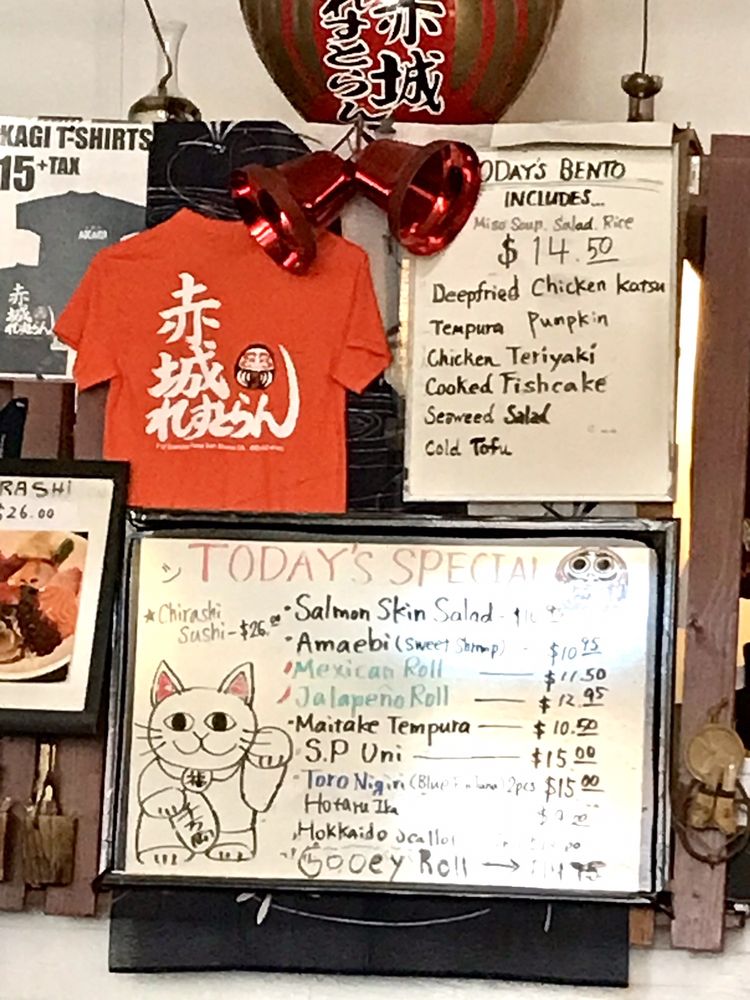 赤城
れすとらん
KAGI T-SHIRTS
15 +TAX
赤
城
れすとらん
ODAY'S BENTO
INCLUDES...
Miso Soup. Salad. Rice
$ 14.50
Deepfried Chicken Katsu
Tempura Punpkin
Chicken Teriyaki
Cooked Fishcake
Seaweed Salad
Cold Tofu
RASHI
$26.00
TODAY'S SPECIAL
★Chirashi
Sushi-$26.00
·Salmon Skin Salad -
·Amaebi (Sweet Shrimp) - $10.95
Mexican Roll — $11.50
Jalapeño Roll — $12.95
·Maitake Tempura — $10.50
·S.P Uni — $15.00
·Toro Nigiri (Blue 2pcs $15.00
Hotaru Ika
Hokkaido Scallo
Gooey Roll →